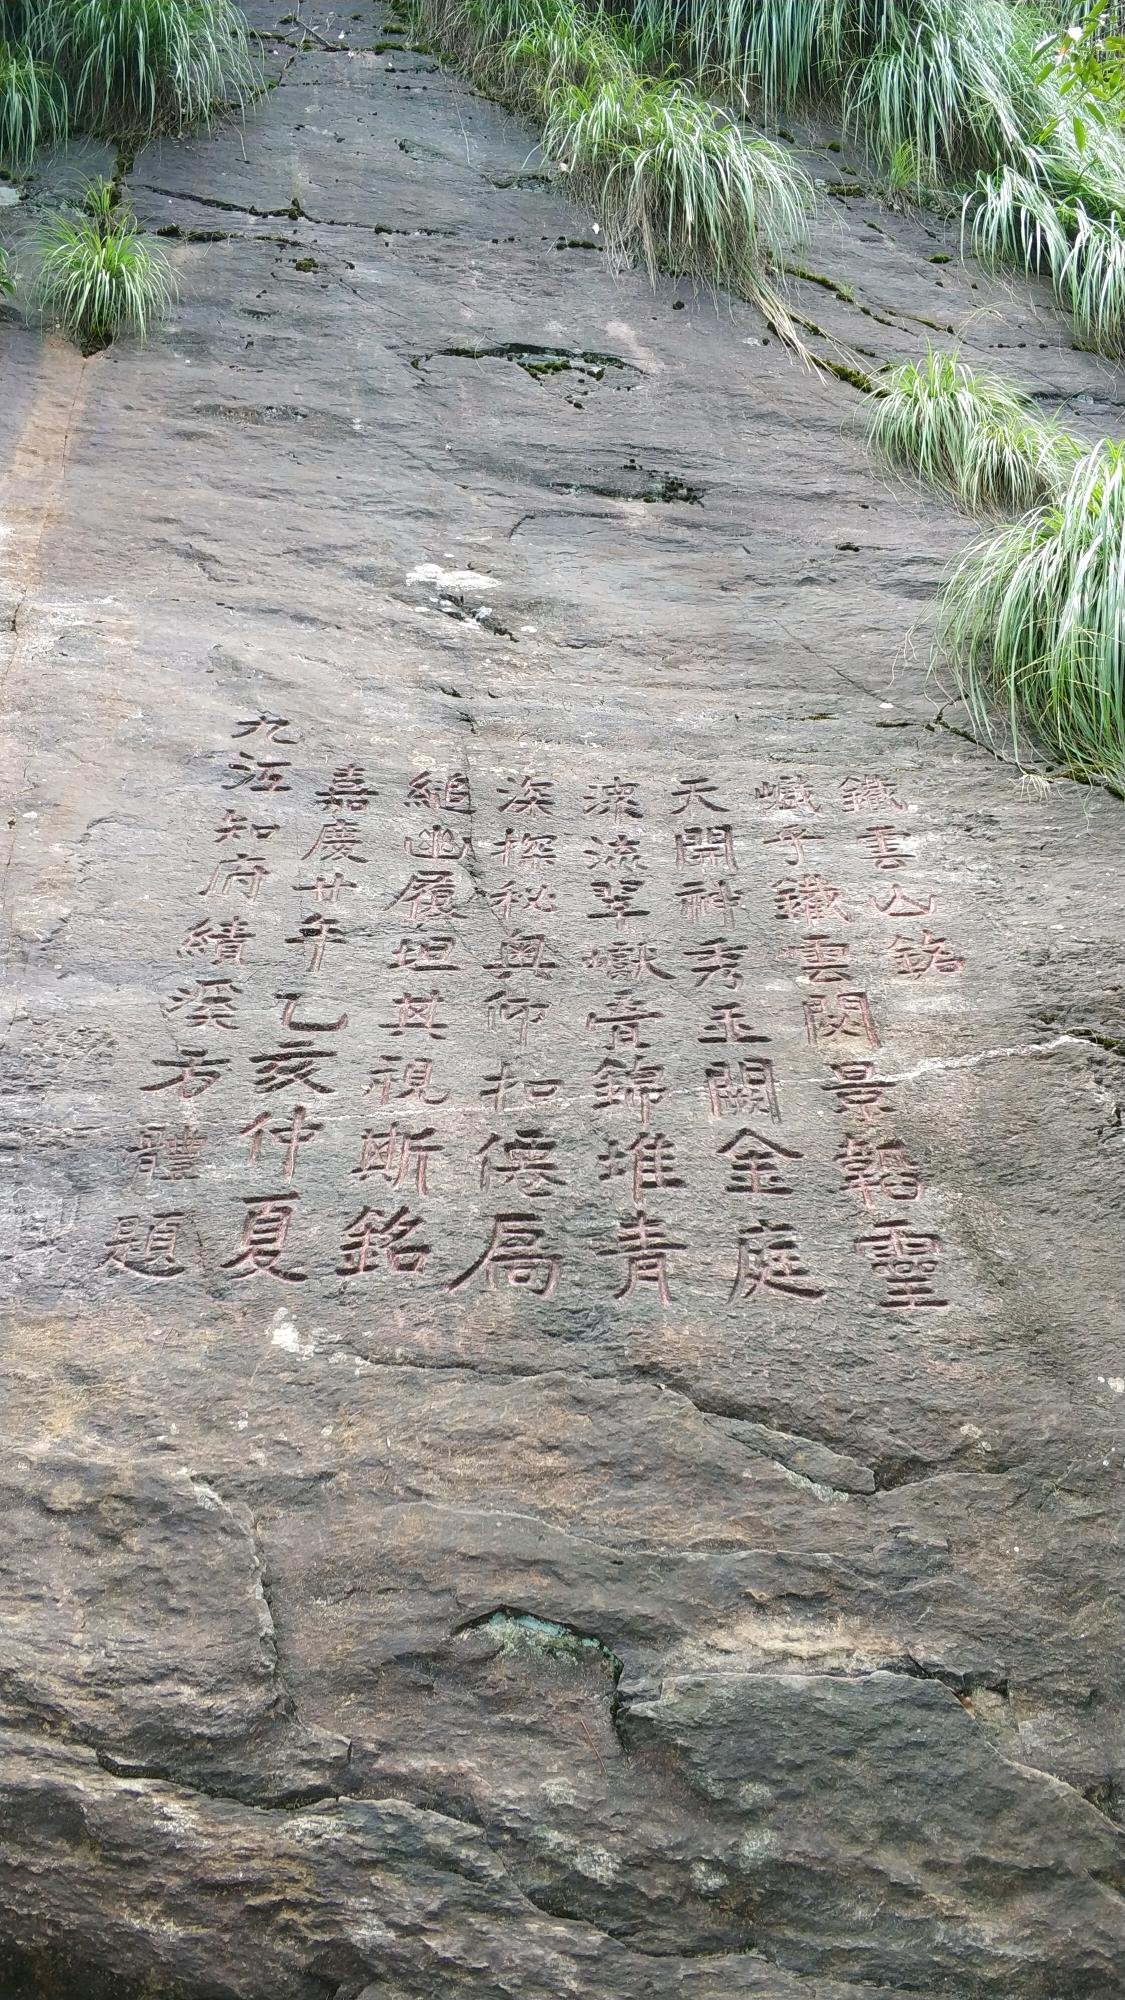 鐵雲山銘
巇乎鐵雲閟景韜靈
天開神秀玉闕金庭
瀑流翠嶽音錦堆青
深探秘奧仰扣僊扃
縋幽履坦其視斯銘
嘉慶廿年乙亥仲夏
九江知府績溪方體題